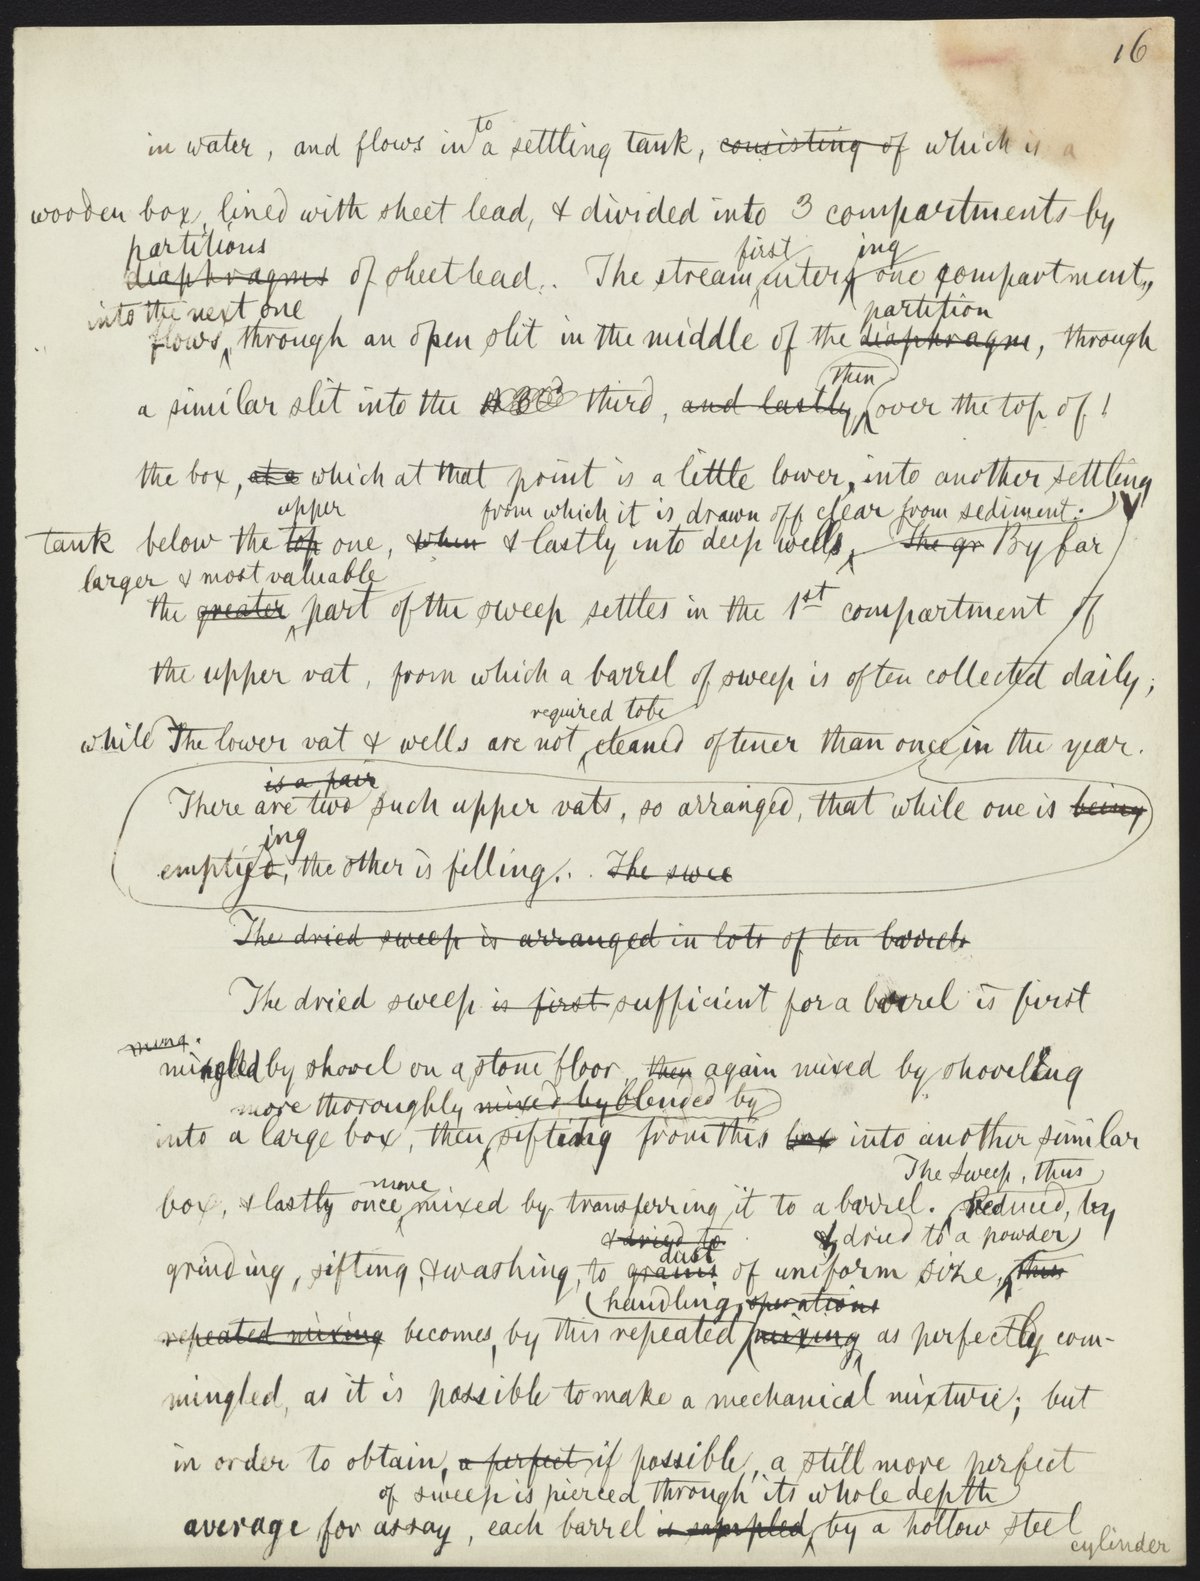 16
in water, and flows into a settling tank, consisting of which is a
wooden box, lined with sheet lead, & divided into 3 compartments by
partitions
diaphragms of sheet lead. The stream, first entering one compartment,
into the next one partition
flows, through an open slit in the middle of the diaphragm, through
a similar slit into the 3d third, and lastly, then over the top of
the box, at a which at that point is a little lower, into another settling
upper from which it is drawn off clear from sediment.
tank below the top one, when & lastly into deep wells, The gr By far
larger & most valuable
the greater part of the sweep settles in the 1st compartment of
the upper vat, from which a barrel of sweep is often collected daily;
required to be
while The lower vat & wells are not cleaned oftener than once in the year.
is a pair
There are two such upper vats, so arranged, that while one is being
ing
emptied, the other is filling. The swee
The dried sweep is arranged in lots of ten barrels
The dried sweep is first sufficient for a barrel is first
ming.
mingled by shovel on a stone floor, then again mixed by shovelling
more thoroughly mixed by blended by
into a large box, then sifting from this box into another similar
more The Sweep, thus
box, & lastly once mixed by transferring it to a barrel. Reduced, by
& dried to dust & dried to a powder
grinding, sifting, & washing, to grains of uniform size, thus
handling, operations
repeated mixing becomes, by this repeated mixing as perfectly com-
mingled, as it is possible to make a mechanical mixture; but
in order to obtain, a perfect if possible, a still more perfect
of sweep is pierced through its whole depth
average for assay, each barrel is sampled by a hollow steel
cylinder